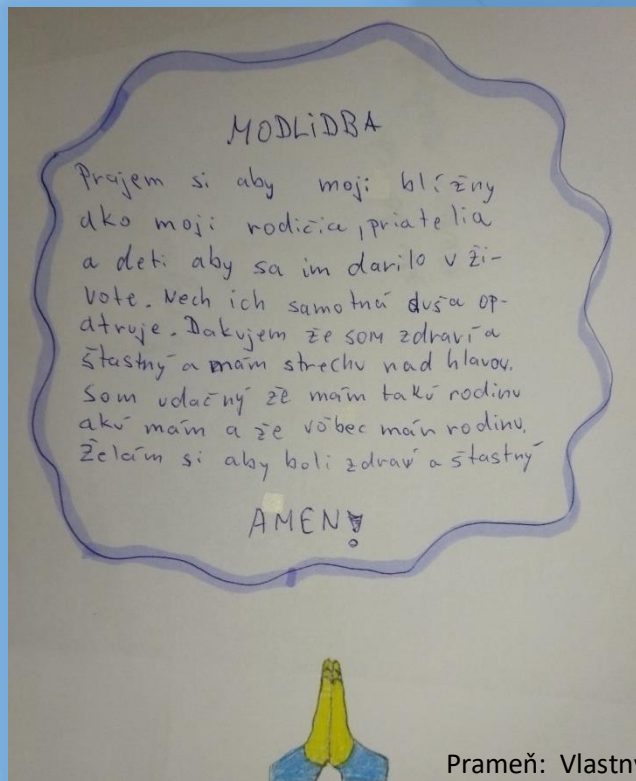 MODLiDBA
Prajem si aby moji blížny
ako moji rodičia, priatelia
a deti aby sa im darilo v ži-
vote. Nech ich samotná duša op-
atruje. Dakujem že som zdraví a
štastný a mám strechu nad hlavov.
Som vdačný že mám takú rodinu
akú mám a že vôbec mám rodinu.
Želám si aby boli zdraví a štastný
AMEN!
Prameň: Vlastný